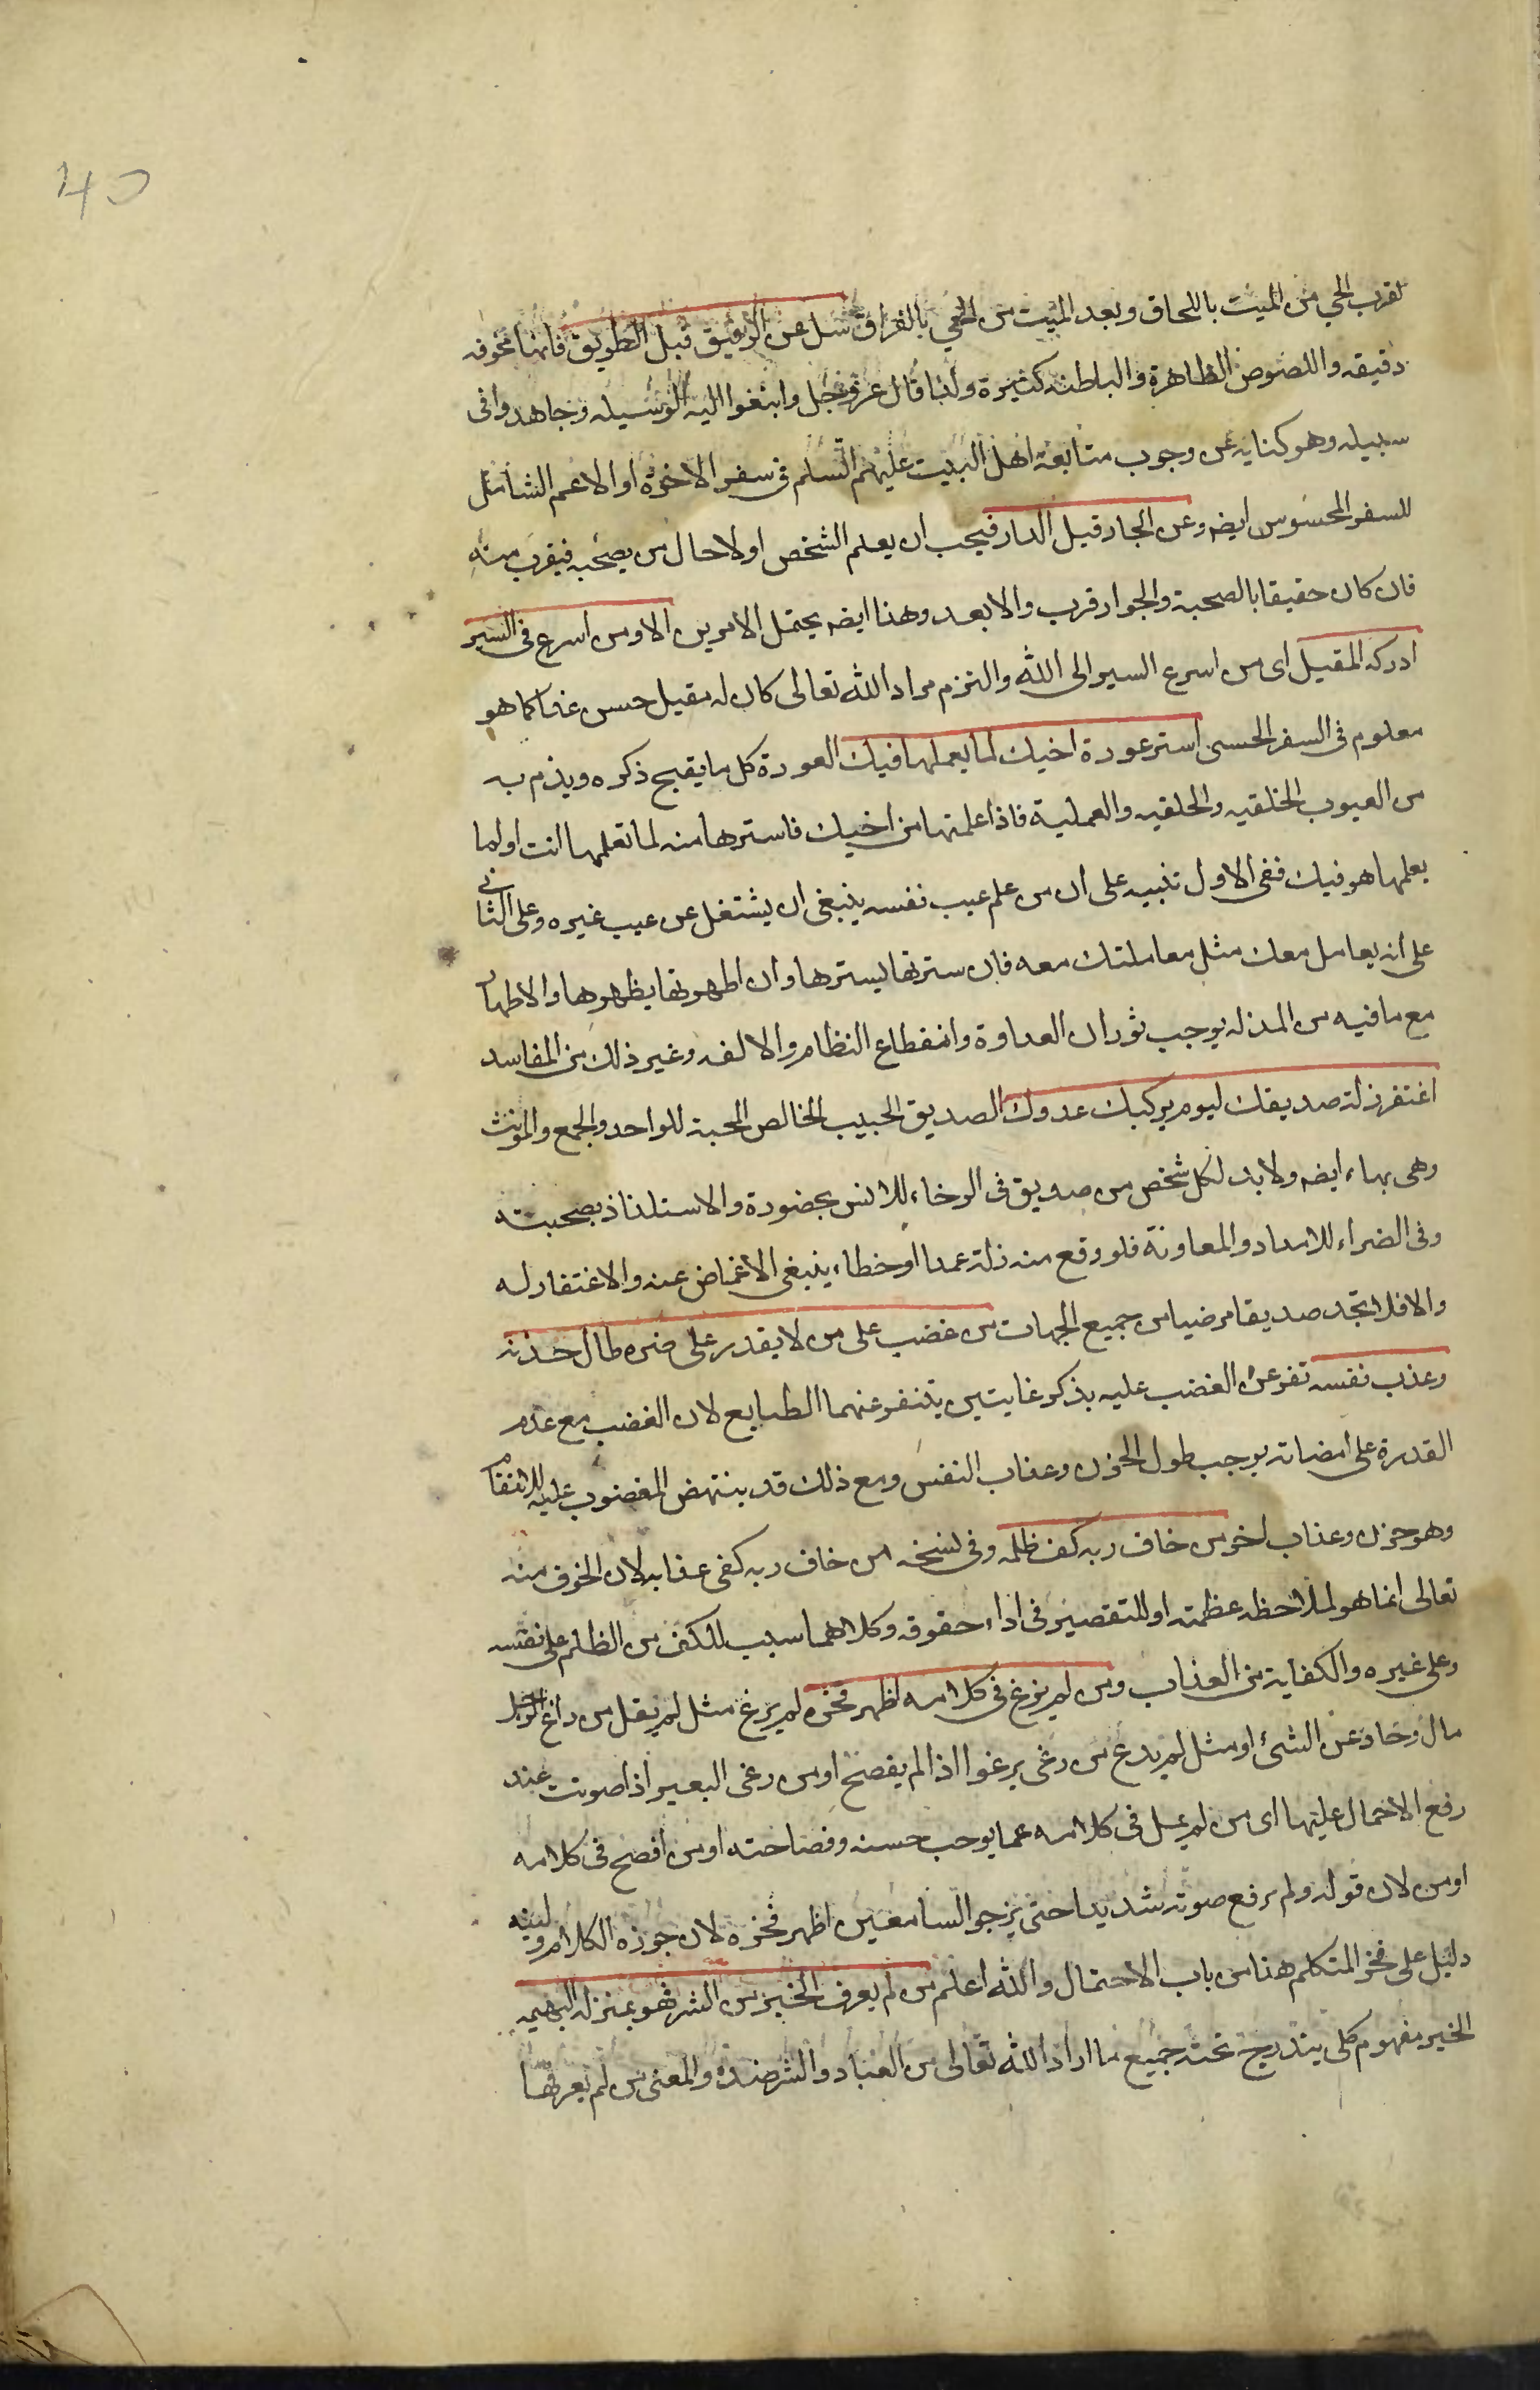 40
لقرب الحي من الميت باللحاق وبعد الميت من الحي بالفراق سل عن الرفيق قبل الطريق فانها مخوفه
دقيقه واللصوص الظاهرة والباطنه كثيرة ولذا قال عز وجل وابتغوا اليه الوسيله وجاهدوا فى
سبيله وهو كنايه عن وجوب متابعة اهل البيت عليهم السلم فى سفر الاخرة او الاعم الشامل
للسفر المحسوس ايضه وعن الجار قبل الدار فيجب ان يعلم الشخص اولا حال من يصحبه فيقرب منه
فان كان حقيقا بالصحبة والجوار قرب والا بعد وهذا ايضه يحتمل الامرين الا ومن اسرع فى السير
ادركه المقيل اى من اسرع السير الى الله والتزم مراد الله تعالى كان له مقيل حسن غدا كما هو
معلوم فى السفر الحسى استر عورة اخيك لما يعملها فيك العورة كل ما يقبح ذكره ويذم به
من العيوب الخلقيه والخلقيه والعملية فاذا علمتها من اخيك فاسترها منه لما تعلمها انت اولما
يعلمها هو فيك ففى الاول تنبيه على ان من علم عيب نفسه ينبغى ان يشتغل عن عيب غيره وعلى الثانى
على انه يعامل معك مثل معاملتك معه فان سترتها يسترها وان اظهرتها يظهرها والاظهار
مع ما فيه من المذله يوجب ثوران العداوة وانقطاع النظام والالفه وغير ذلك من المفاسد
اغتفر زلة صديقك ليوم يركبك عدوك الصديق الحبيب الخالص المحبة للواحد والجمع والمونث
وهى بهاء ايضه ولابد لكل شخص من صديق فى الرخاء للانس بحضورة والاستلذاذ بصحبته
وفى الضراء للامداد والمعاونة فلو وقع منه زلة عمدا او خطاء ينبغى الاغماض عنه والاغتفار له
والا فلا تجد صديقا مرضيا من جميع الجهات من غضب على من لا يقدر على ضره طال حزنه
وعذب نفسه تفر عن الغضب عليه بذكر غايتين يتنفر عنهما الطبايع لان الغضب مع عدم
القدرة على امضائه يوجب طول الحزن وعذاب النفس ومع ذلك قد ينتهض المغضوب عليه للانتقام
وهو حزن وعذاب اخر من خاف ربه كف ظلمه وفى نسخه من خاف ربه كفى عذابه لان الخوف منه
تعالى انما هو لملاحظه عظمته او للتقصير فى اداء حقوقه وكلاهما سبب للكف من الظلم على نفسه
وعلى غيره والكفاية من العذاب ومن لم يزغ فى كلامه اظهر فخره لم يزغ مثل لم يقل من زاغ الرجل
مال وحاد عن الشئ او مثل لم يدع من رغى يرغوا اذا لم يفصح او من رغى البعير اذا صوت عند
رفع الاحمال عليها اى من لم يمل فى كلامه عما يوجب حسنه وفصاحته او من افصح فى كلامه
او من لان قوله ولم يرفع صوته شديدا حتى يزجر السامعين اظهر فخره لان جوزه الكلام ولينه
دليل على فخر المتكلم هذا من باب الاحتمال والله اعلم من لم يعرف الخير من الشر فهو بمنزله البهيمه
الخير مفهوم كلى يندرج تحته جميع ما اراد الله تعالى من العباد والشر ضده والمعنى من لم يعرفها